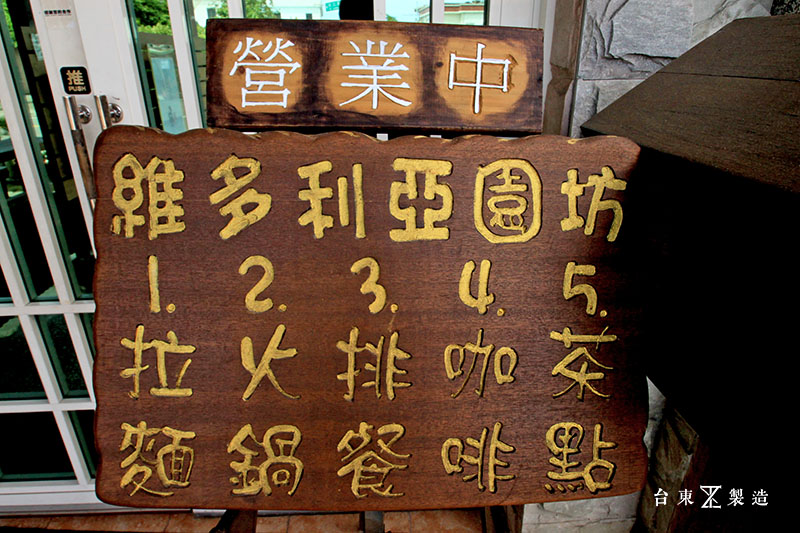 營業中
推
PUSH
維多利亞園坊
1. 2. 3. 4. 5.
拉 火 排 咖 茶
麵 鍋 餐 啡 點
台東製造